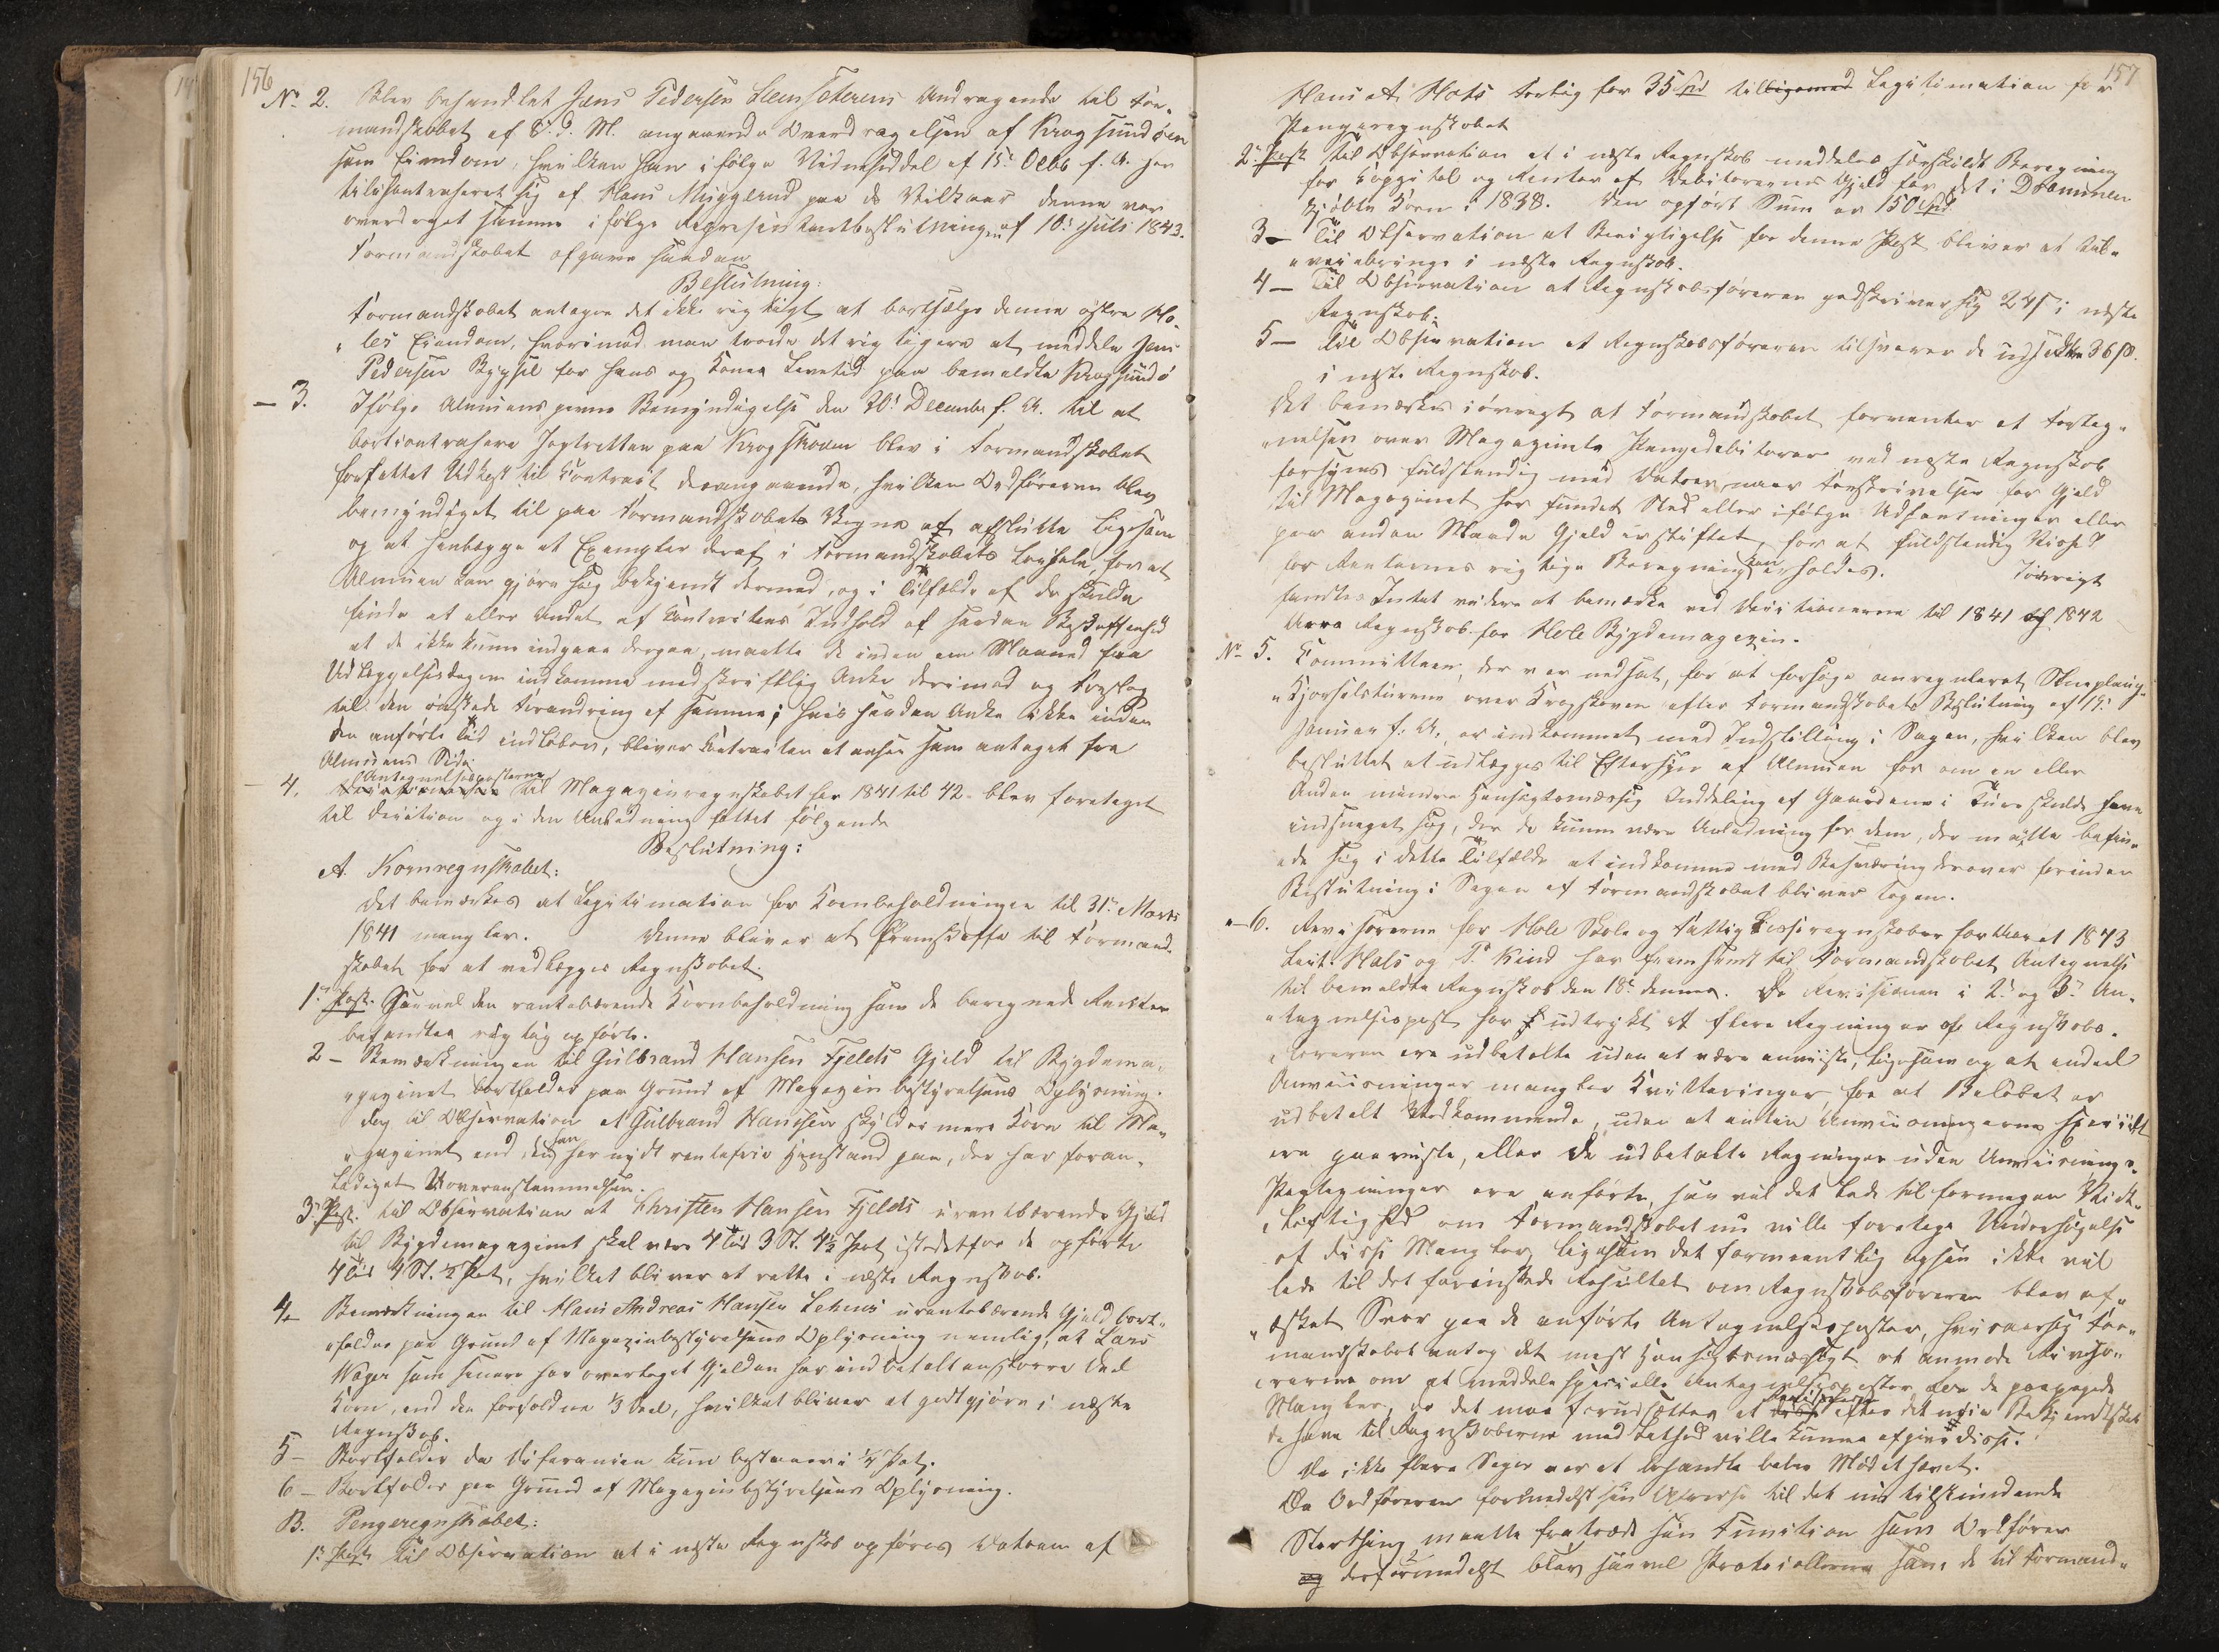 156
No 2. Blev behandlet Jens Pedersen Steensæterens Andragende til For-
mandskabet af 8. d. M. angaaende Overdragelsen af Krogsundøen
som Eiendom, hvilken han ifølge Vidnesiddel af 15de Octbr f. A. har
tilkontraheret sig af Hans Mÿggerud paa de Vilkaar denne var
overdraget samme ifølge Repræsentantbeslutningen af 10de Juli 1843.
Formandskabet afgave saadan
Beslutning:
Formandskabet antager det ikke rigtigt at bortsælge denne østre Ho-
les Eiendom, hvorimod man troede det rigtigere at meddele Jens
Pedersen Bygsel for hans og Kones Levetid paa bemeldte Krogsundø
- 3. Ifølge Almuens givne Bemyndigelse den 20de December f. A. til at
bortkontrahere Jagtretten paa Krogskoven blev i Formandskabet
forfattet Udkast til Contract derangaaende, hvilken Ordføreren blev
bemyndiget til paa Formandskabets Vegne at afslutte ligesom
og at henlægge et Exemplar deraf i Formandskabets for at
Almuen kan gjøre sig bekjendt dermed, og i Tilfælde af de skulde
finde et eller andet af Contractens Indhold af saadan Beskaffenhed
at de ikke kunne indgaae derpaa, maatte de inden en Maaned fra
Udlæggelsesdagen indkomme med skriftlig Anke derimod og Forslag
til den ønskede Forandring af samme; hvis saadan Anke ikke inden
den anførte Tid indløber, bliver Contracten at ansee som antaget fra
Almuens Side.
- 4. Antegnelsesposterne til Magazinregnskabet for 1841 til 42 blev foretaget
til Decision og i den Anledning fattet følgende
Beslutning:
A. Kornregnskabet:
Det bemærkes at Legitimation for Kornbeholdningen til 31te Marts
1841 mangler. Denne bliver at fremskaffe til Formand-
skabet for at vedlægges Regnskabet.
1ste Post. Saavel den rentebærende Kornbeholdning som de beregnede Renter
befandtes rigtig opførte.
2 - Bemærkningen til Gulbrand Hansen Fjelds Gjeld til Bygdema-
gazinet bortfalder paa Grund af Magazinbestyrelsens Oplysning.
dog til Observation at Gulbrand Hansen skylder mere Korn til Ma-
gazinet end han har nydt rentefrie Henstand paa, der har foran-
lediget Uoverenstemmelsen.
3die Post. til Observation at Christen Hansen Fjelds urentebærende Gjeld
til Bygdemagazinet skal være 4 Tdr 3 St. 4½ Pot istedetfor de opførte
4 Tdr 4 St. ½ Pot, hvilket bliver at rette i næste Regnskab.
4 - Bemærkningen til Hans Andreas Hansen Lehnes urentebærende Gjeld bort-
falder paa Grund af Magazinbestyrelsens Oplysning nemlig, at Lars
Wager som senere har overtaget Gjelden har indbetalt en større Deel
Korn, end den forfaldne ⅓ Deel, hvilket bliver at godtgjøre i næste
Regnskab.
5 - Bortfalder da Differancen kun bestaaer i ¼ Pot.
6 - Bortfalder paa Grund af Magazinbestyrelsens Oplysning.
B. Pengeregnskabet:
1ste Post til Observation at i næste Regnskab opføres Datoen af
157
Hans A. Hals Forlig for 35 Spd tilligemed Legitimation for
Pengeregnskabet
2den Post til Observation at i næste Regnskab meddeles særskildt Beregning
for Capital og Renter af Debitorernes Gjeld for det i Drammen
kjøbte Korn i 1838. Den opført Sum er 150 Spd
3 - Til Observation at Berigtigelse for denne Post bliver at til-
veiebringe i næste Regnskab.
4 - Til Observation at Regnskabsføreren godskriver sig 24 ß i næste
Regnskab.
5 - Til Observation at Regnskabsføreren tilsvarer de 36 ß.
i næste Regnskab.
Det bemærkes iøvrigt at Formandskabet forventer at Forteg-
nelsen over Magazinets Pengedebitorer ved næste Regnskab
forsynes fuldstændig med Datoer naar Forskrivelser for Gjeld
til Magazinet har fundet Sted eller ifølge Udsætninger eller
paa anden Maade Gjeld er stiftet, for at fuldstændig Vished
for Renternes rigtige Beregning kan erholdes. Iøvrigt
fandtes Intet videre at bemærke ved Decisionerne til 1841 og 1842
Aars Regnskab for Hole Bygdemagazin.
No 5. Committeen, der var nedsat, for at forsøge omreguleret Sneeploug-
kjørselsturene over Krogskoven efter Formandskabets Beslutning af 19de
Januar f. A., er indkommet med Indstilling i Sagen, hvilken blev
besluttet at udlægges til Eftersyn af Almuen for om en eller
Anden mindre hensigtsmæssig Inddeling af Gaardene i Ture skulde have
indsneget sig, der da kunne være Anledning for dem, der maatte befin-
de sig i dette Tilfælde at indkomme med Besværing derover forinden
Beslutning i Sagen af Formandskabet bliver tagen.
- 6. Revisorerne for Hole Skole og Fattigkasseregnskaber for Aaret 1843
Leut. Hals og P. Kind har fremsendt til Formandskabet Antegnelse
til bemeldte Regnskab den 18de dennes. Da Revisionen i 2den og 3die An-
tegnelsespost har udtrykt at flere Regninger af Regnskabs-
føreren ere udbetalte uden at være anviiste, ligesom og at endeel
Anviisninger mangler Kvitteringer for at Beløbet er
udbetalt Vedkommende, uden at enten Anviisningerne specielt
ere paaviste, eller de udbetalte Regninger uden Anviisnings-
Paategninger ere anførte, saa vil det lede til formegen Vidt-
løftighed om Formandskabet nu ville foretage Undersøgelse
af disse Mangler, ligesom det formeentlig ogsaa ikke vil
lede til det forønskede Resultat om Regnskabsføreren blev af-
æsket Svar paa de anførte Antegnelsesposter, hvisaarsag For-
mandskabet antog det mest hensigtsmæssigt at anmode Reviso-
rerne om at meddele specielle Antegnelsesposter over de paapegede
Mangler, da det maa forudsættes at Revisorerne efter det nøie Bekjendtskab
de have til Regnskaberne med Lethed ville kunne afgive disse.
Da ikke flere Sager var at behandle blev Mødet hævet.
Da Ordføreren formedelst sin Afreise til det nu tilstundende
Storthing maatte fratræde sin Function som Ordfører
og derformedelst blev saavel Protocollerne som de til Formand-